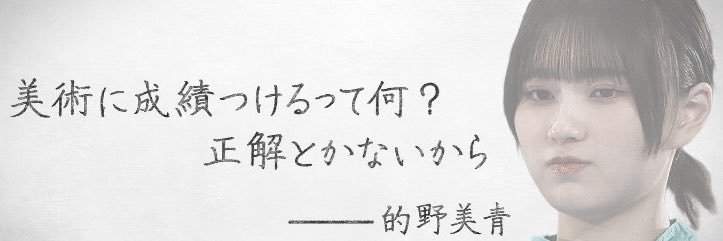 美術に成績つけるって何？
正解とかないから
――的野美青